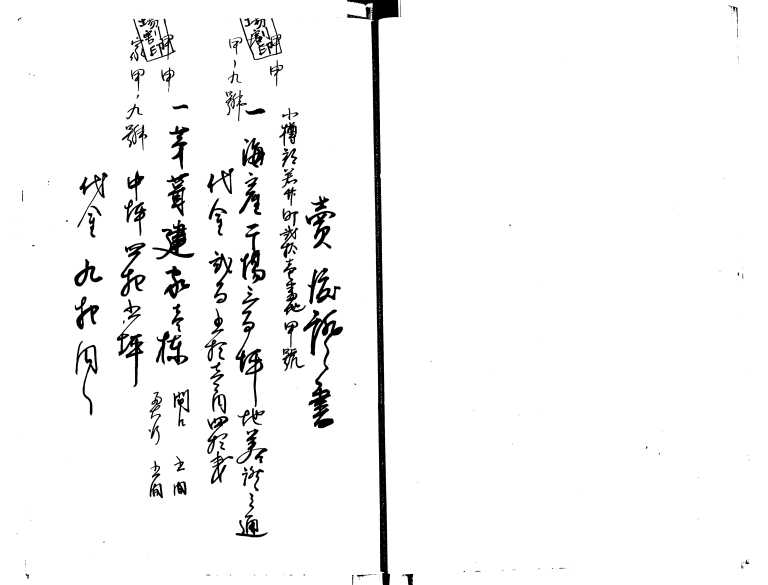 賣渡証之書
小樽郡若竹町貳拾壱番地甲號
申
甲ノ九號
一海産干場三百坪 地券證之通
代金貳百五拾壱円四拾戋
申
家甲ノ九號
一茅葺建家壱棟 間口 五間
奥行 五間
中坪四拾五坪
代金九拾円也